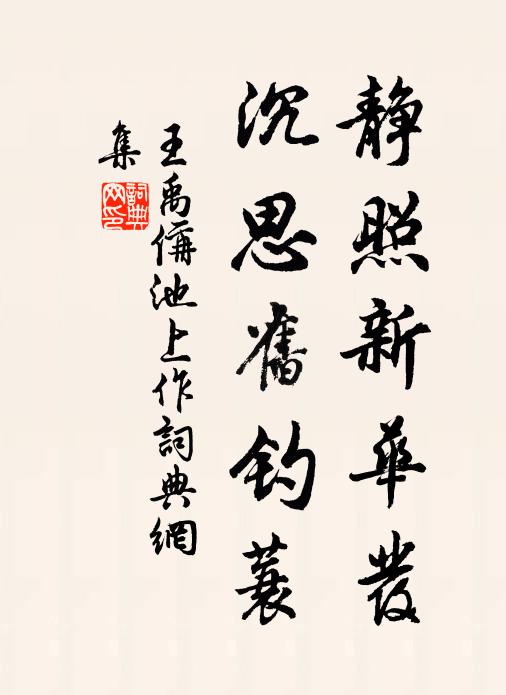 静照新華發
沉思舊钓蓑
王禹偁池上作詞典網
集
詞典網印